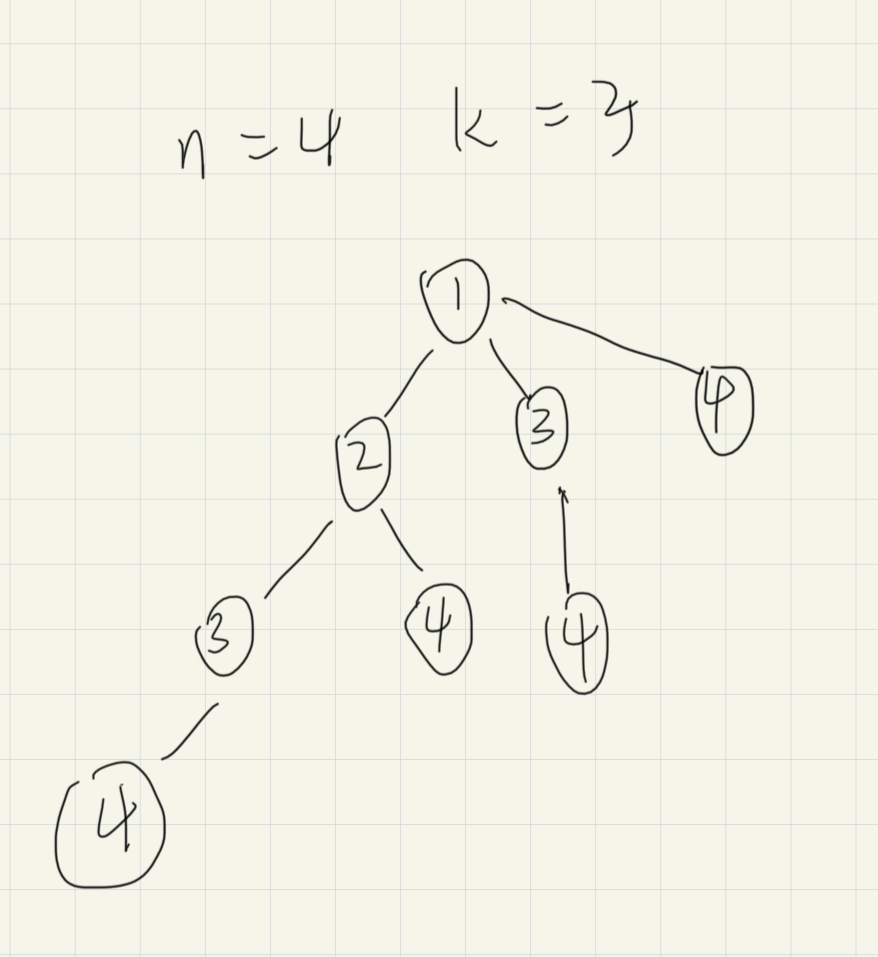 n = 4 k = 3
1
2 3 4
3 4 4
4